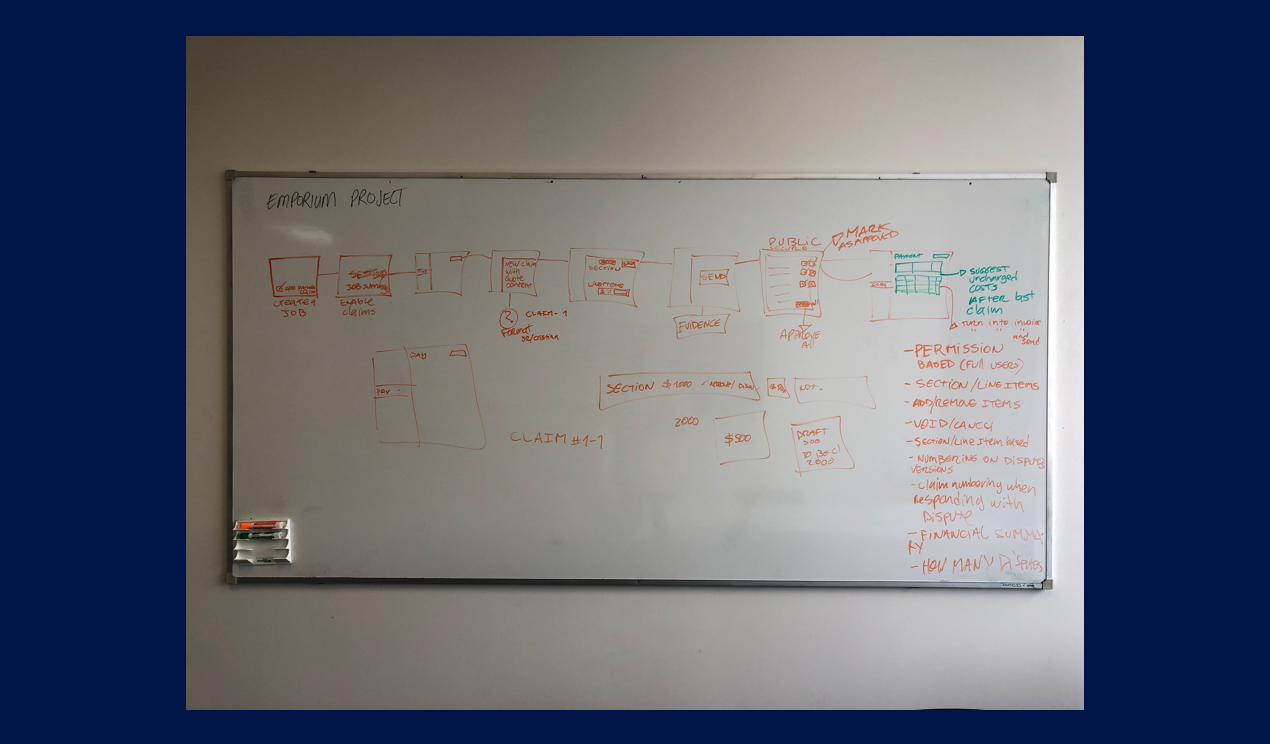 EMPORIUM PROJECT
CREATE A
JOB
ENABLE
claims
JOB
NEW claim
with
quote
content
CLAIM-1
Format
SECTION
SEND
EVIDENCE
PUBLIC
MARK
AS APPROVED
APPROVE
All
PAYMENT
SUGGEST
uncharged
COSTS
AFTER last
claim
Turn into invoice
" " and
send
PAY
CLAIM #1-1
SECTION $1000 / APPROVE/
NOT.
2000
$500
DRAFT
500
TO BE C/
2000
-PERMISSION
BASED (FULL USERS)
- SECTION/LINE ITEMS
- ADD/REMOVE ITEMS
- VOID/CANCL
- Section/Line Item based
- NUMBERING ON DISPUTE
VERSIONS
- Claim numbering when
responding with
Dispute
- FINANCIAL SUMMA-
RY
- HOW MANY Disputes